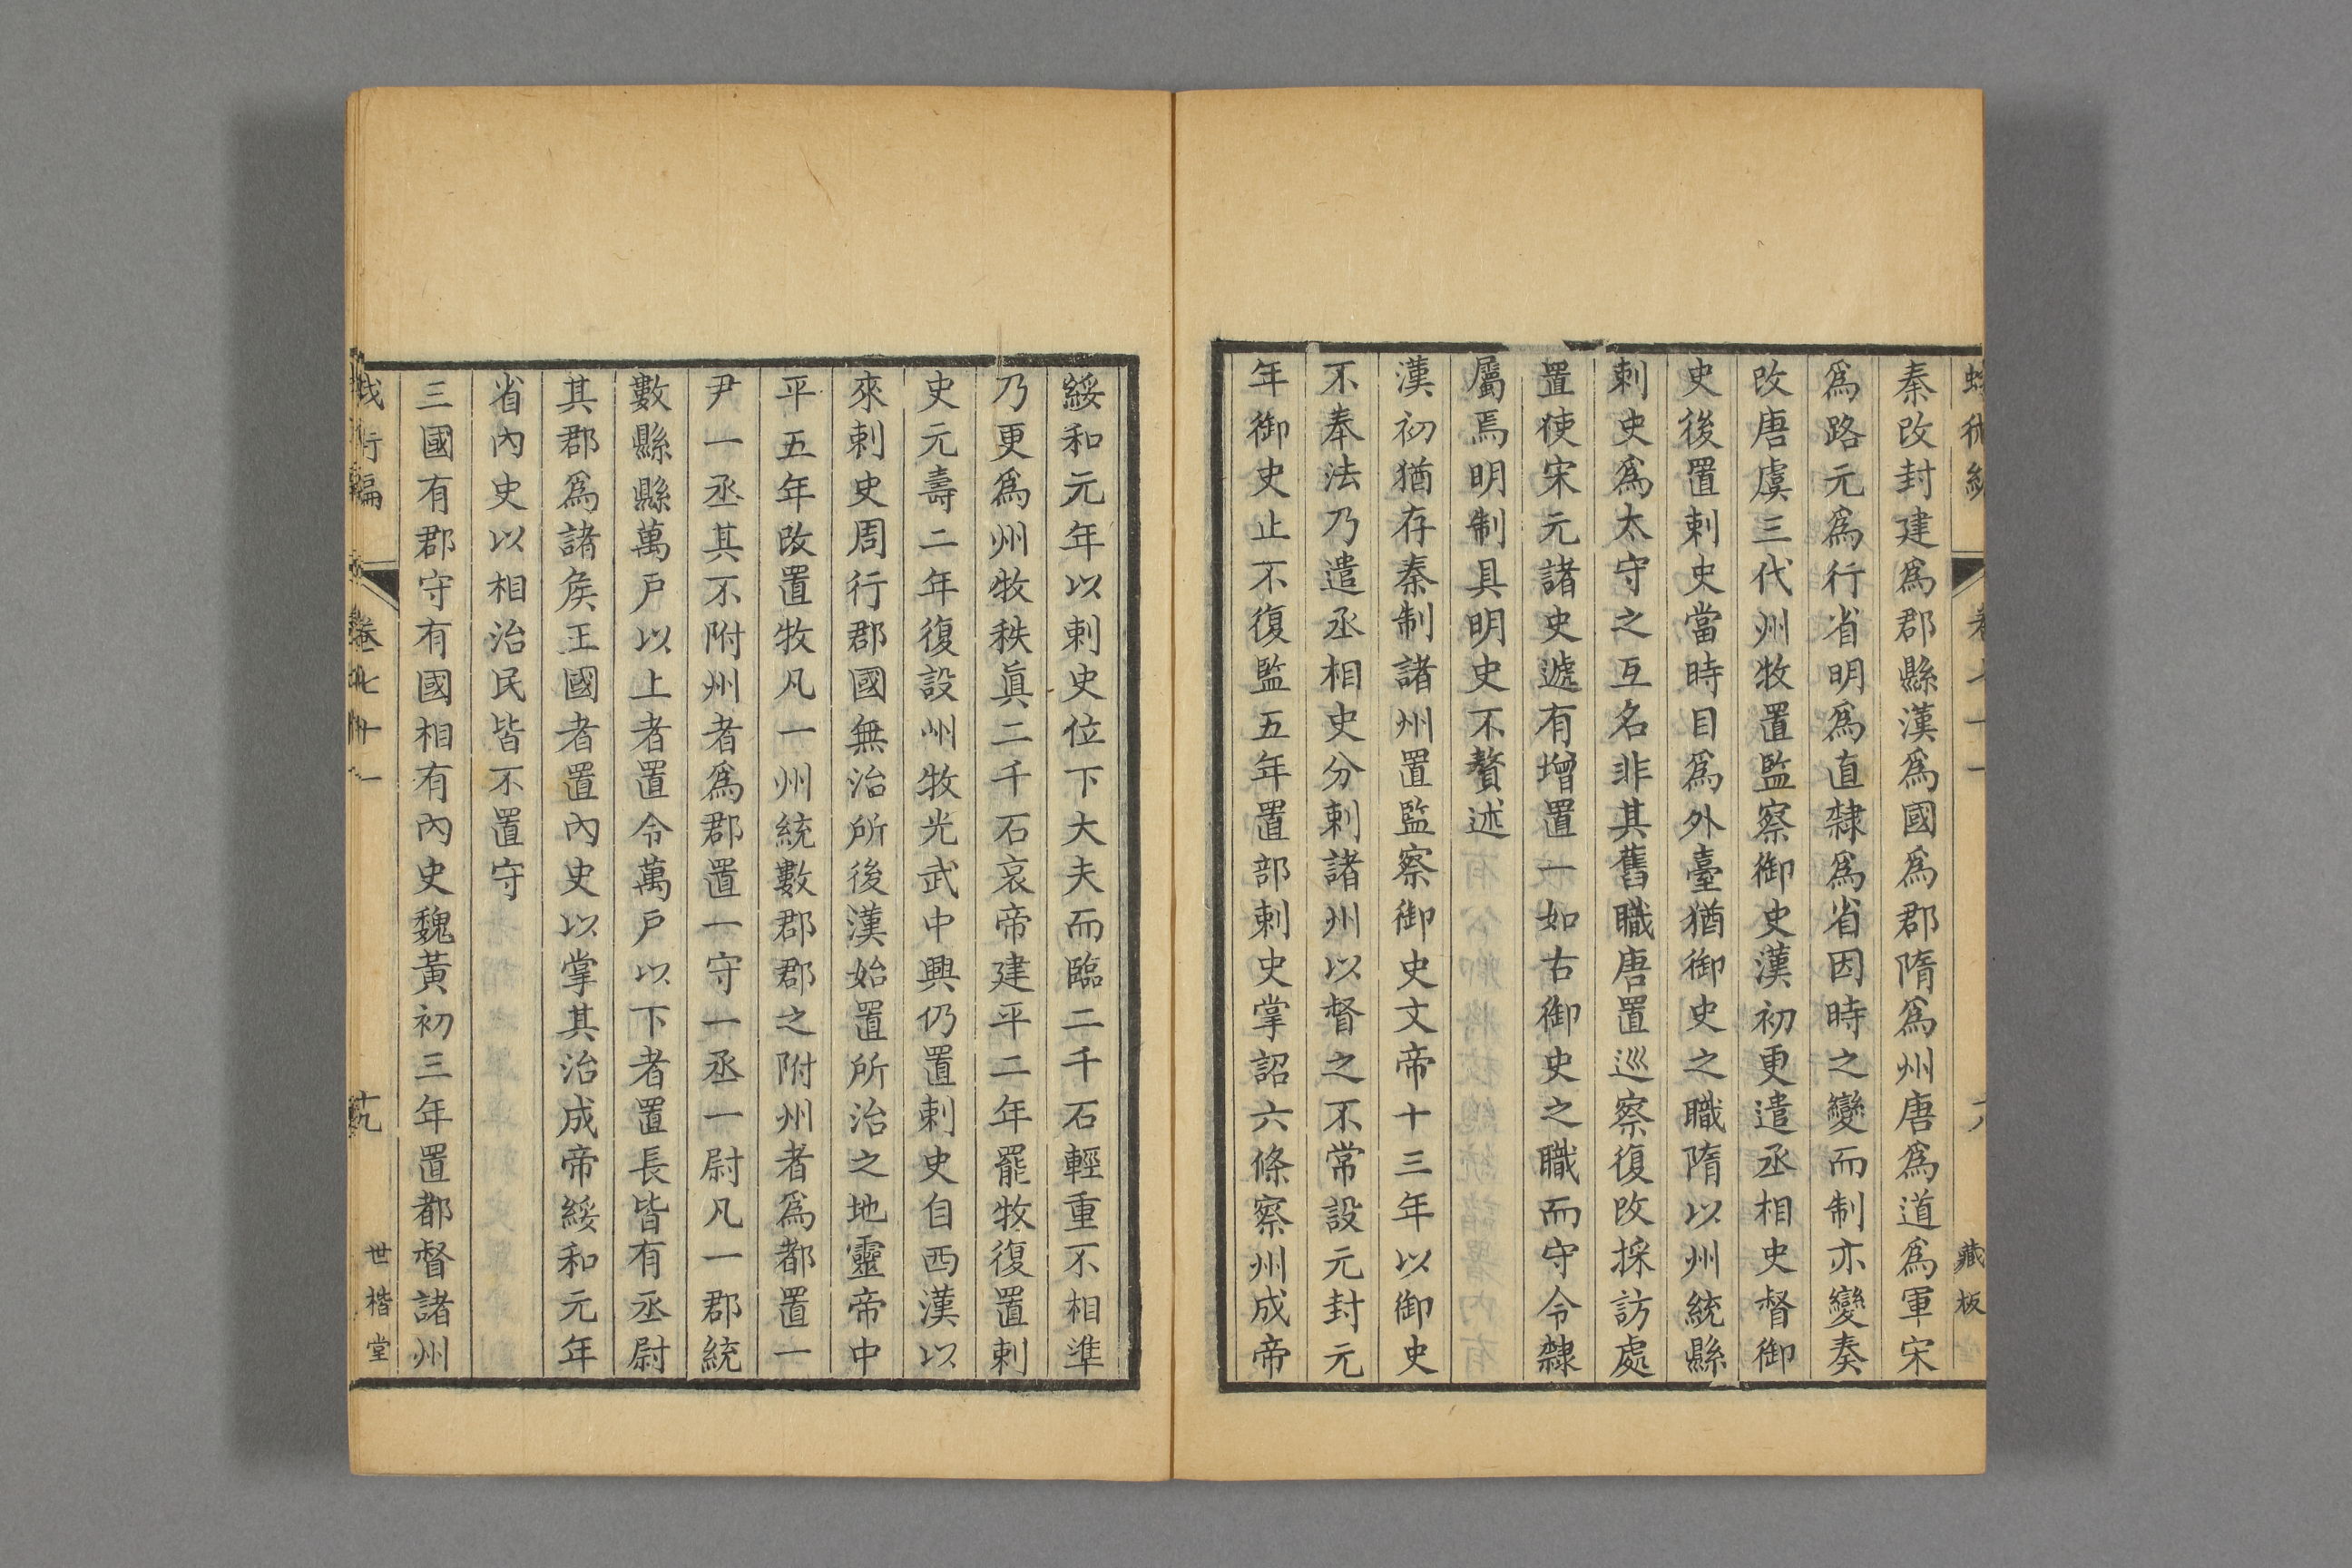 藏板
秦改封建爲郡縣漢爲國爲郡隋爲州唐爲道爲軍宋
爲路元爲行省明爲直隸爲省因時之變而制亦變奏
改唐虞三代州牧置監察御史漢初更遣丞相史督御
史後置刺史當時目爲外臺猶御史之職隋以州統縣
刺史爲太守之互名非其舊職唐置巡察復改採訪處
置使宋元諸史遞有增置一如古御史之職而守令隸
屬焉明制具明史不贅述
漢初猶存秦制諸州置監察御史文帝十三年以御史
不奉法乃遣丞相史分刺諸州以督之不常設元封元
年御史止不復監五年置部刺史掌詔六條察州成帝
綏和元年以刺史位下大夫而臨二千石輕重不相準
乃更爲州牧秩眞二千石哀帝建平二年罷牧復置刺
史元壽二年復設州牧光武中興仍置刺史自西漢以
來刺史周行郡國無治所後漢始置所治之地靈帝中
平五年改置牧凡一州統數郡郡之附州者爲都置一
尹一丞其不附州者爲郡置一守一丞一尉凡一郡統
數縣縣萬戶以上者置令萬戶以下者置長皆有丞尉
其郡爲諸矦王國者置內史以掌其治成帝綏和元年
省內史以相治民皆不置守
三國有郡守有國相有內史魏黃初三年置都督諸州
編 卷七十一 十九 世楷堂